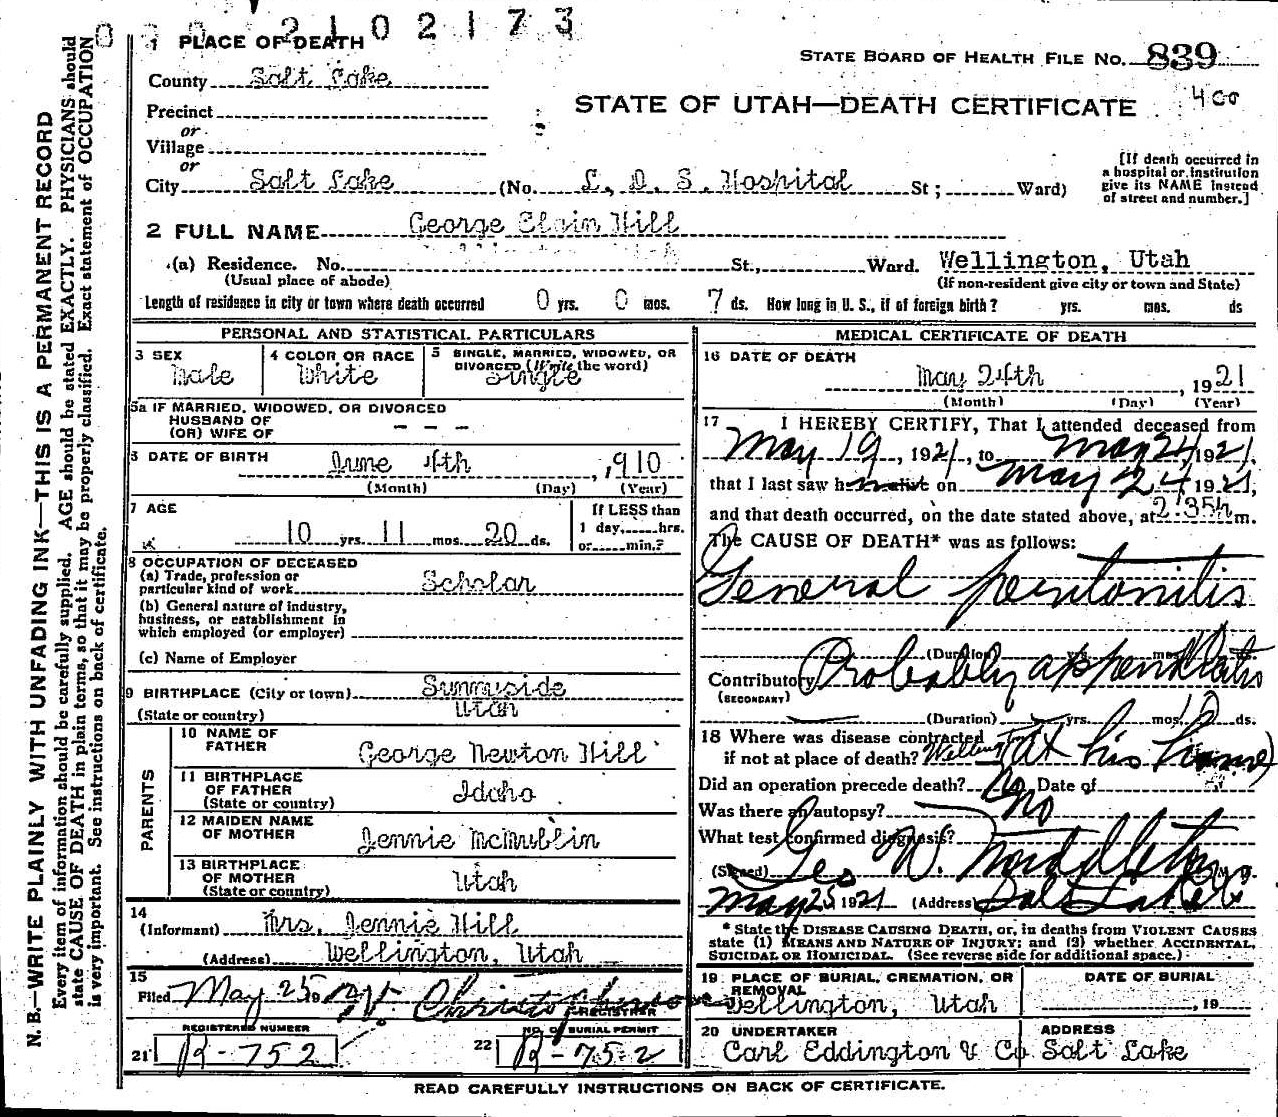 2102173
1 PLACE OF DEATH
STATE BOARD OF HEALTH FILE NO. 839
County Salt Lake
STATE OF UTAH—DEATH CERTIFICATE
400
Precinct
or
Village
or
City Salt Lake (No. L. D. S. Hospital St; Ward)
[If death occurred in a hospital or institution give its NAME instead of street and number.]
2 FULL NAME George Elain Hill
(a) Residence. No. St., Ward. Wellington, Utah
(Usual place of abode) (If non-resident give city or town and State)
Length of residence in city or town where death occurred 0 yrs. 0 mos. 7 ds. How long in U. S., if of foreign birth? yrs. mos. ds
PERSONAL AND STATISTICAL PARTICULARS
3 SEX Male
4 COLOR OR RACE White
5 SINGLE, MARRIED, WIDOWED, OR DIVORCED (Write the word) Single
5a IF MARRIED, WIDOWED, OR DIVORCED
HUSBAND OF
(OR) WIFE OF - - -
6 DATE OF BIRTH June 4th, 1910
(Month) (Day) (Year)
7 AGE 10 yrs. 11 mos. 20 ds.
If LESS than
1 day, hrs.
or min.?
8 OCCUPATION OF DECEASED
(a) Trade, profession or
particular kind of work Scholar
(b) General nature of industry,
business, or establishment in
which employed (or employer)
(c) Name of Employer
9 BIRTHPLACE (City or town) Sunnyside
(State or country) Utah
PARENTS
10 NAME OF FATHER George Newton Hill
11 BIRTHPLACE OF FATHER (State or country) Idaho
12 MAIDEN NAME OF MOTHER Jennie McMullin
13 BIRTHPLACE OF MOTHER (State or country) Utah
14 (Informant) Mrs. Jennie Hill
(Address) Wellington, Utah
15 Filed May 25 19
REGISTRAR
REGISTERED NUMBER
21 R-752
NO. OF BURIAL PERMIT
22 R-752
MEDICAL CERTIFICATE OF DEATH
16 DATE OF DEATH
May 24th, 1921
(Month) (Day) (Year)
17 I HEREBY CERTIFY, That I attended deceased from
May 19, 1921, to May 24, 1921,
that I last saw him alive on May 24, 1921,
and that death occurred, on the date stated above, at 2:35 m.
The CAUSE OF DEATH* was as follows:
General peritonitis
(Duration) yrs. mos. ds.
Contributory Probably appendicitis
(SECONDARY)
(Duration) yrs. mos. ds.
18 Where was disease contracted
if not at place of death? Wellington (at his home)
Did an operation precede death? No Date of
Was there an autopsy? No
What test confirmed diagnosis?
(Signed) Geo W. Middleton, M. D.
May 25, 1921 (Address) Salt Lake
* State the DISEASE CAUSING DEATH, or, in deaths from VIOLENT CAUSES
state (1) MEANS AND NATURE OF INJURY; and (2) whether ACCIDENTAL,
SUICIDAL OR HOMICIDAL. (See reverse side for additional space.)
19 PLACE OF BURIAL, CREMATION, OR REMOVAL Wellington, Utah
DATE OF BURIAL , 19
20 UNDERTAKER Carl Eddington & Co
ADDRESS Salt Lake
READ CAREFULLY INSTRUCTIONS ON BACK OF CERTIFICATE.
N. B.—WRITE PLAINLY WITH UNFADING INK—THIS IS A PERMANENT RECORD
Every item of information should be carefully supplied. AGE should be stated EXACTLY. PHYSICIANS should
state CAUSE OF DEATH in plain terms, so that it may be properly classified. Exact statement of OCCUPATION
is very important. See instructions on back of certificate.